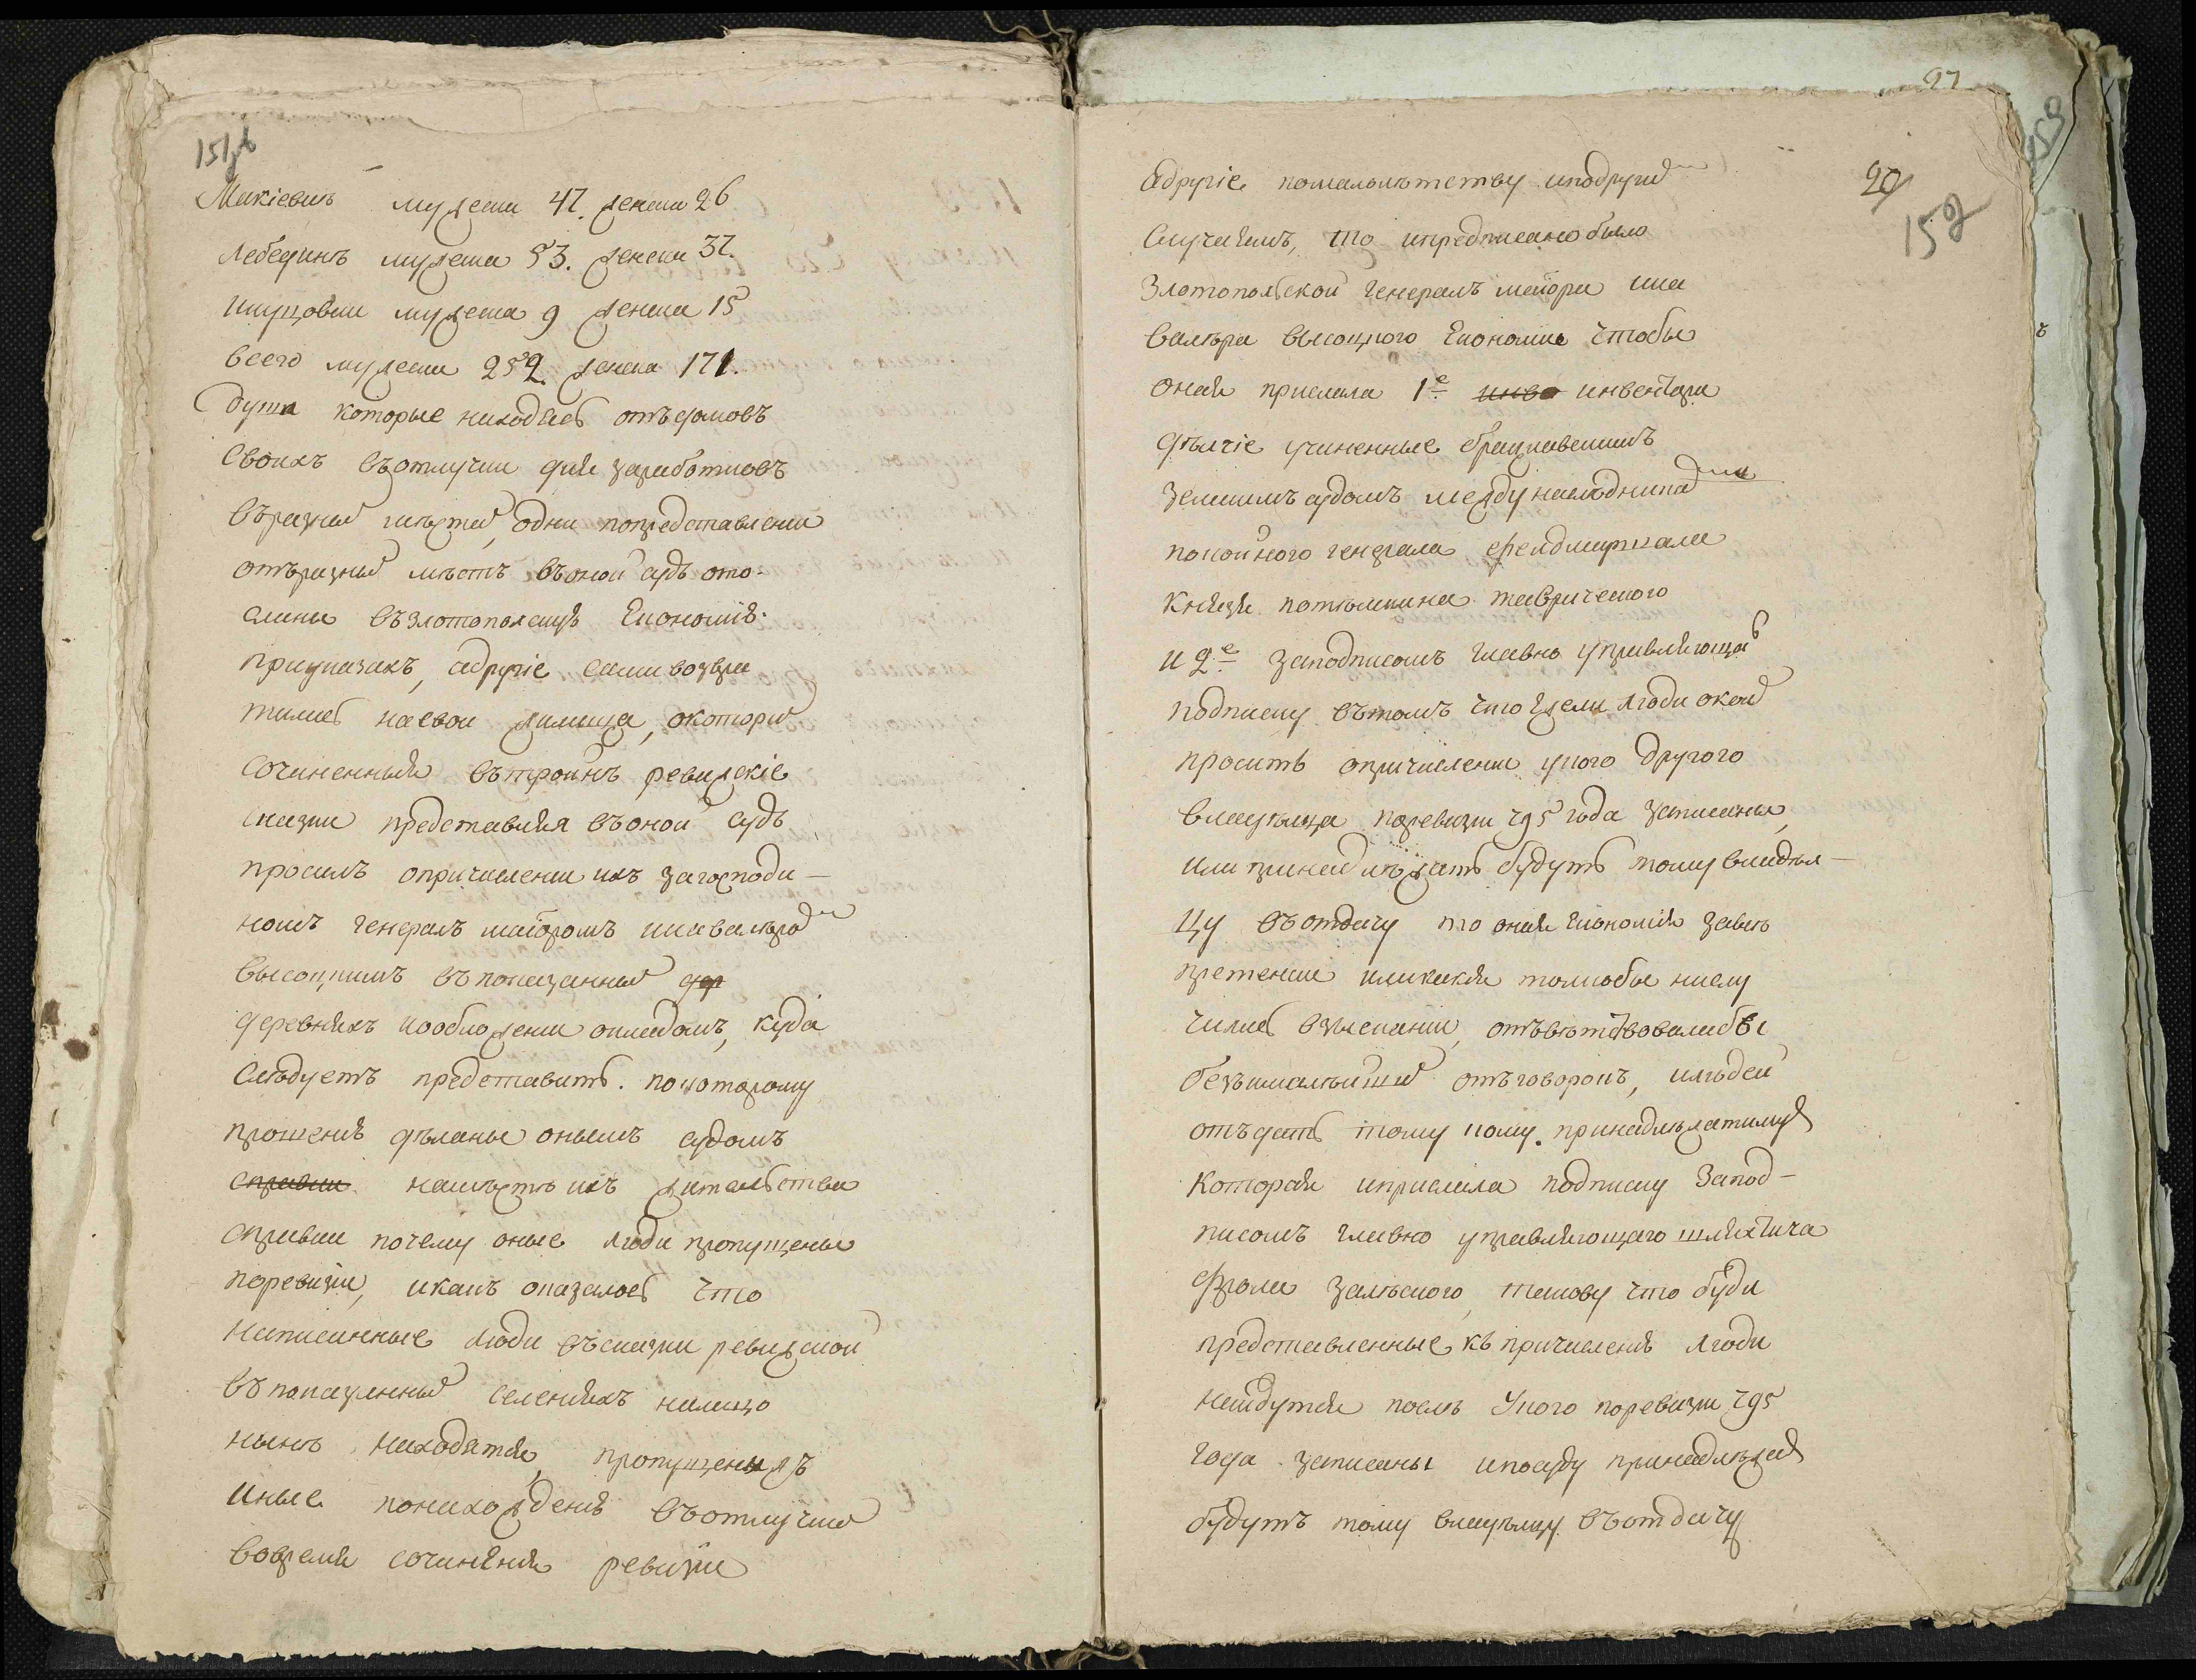 151 об
Макіевиъ мужеска 47. женска 26
Лебединъ мужеска 53. женска 37.
мужеска 9 женска 15
Всего мужеска 252. женска 171.
душа которые находясь отъ домовъ
Своихъ въ отлучки для заработковъ
въ разныхъ местахъ, одни по представлении
отъ разныхъ мѣстъ въ оной судъ ото-
сланы въ злотопольскую Економію
при указахъ, а другіе сами возвра
тились на свои жилища, о которыхъ
сочиненныя въ тройнѣ ревижскіе
сказки представляя въ оной судъ
просилъ о причислении ихъ за господи-
номъ генералъ маіоромъ и кавалеромъ
высоцкимъ въ показанныхъ дер
деревняхъ и о обложении окладомъ, куда
Слѣдуетъ представить. по которому
прошенію дѣланы онымъ судомъ
справки на мѣстѣ ихъ жительства
справки почему оные люди пропущены
по ревизіи, и какъ оказалось что
написанные люди въ сказки ревижской
въ показанныхъ селенияхъ налицо
нынѣ находятся, пропущены жъ
иные по нахожденію въ отлучкахъ
во время сочинения ревизіи
97
153
20
152
а другіе по малолѣтству и по другимъ
Случаямъ, то и предписано было
Злотопольской генералъ маіора и ка
валера высоцкого Економіи чтобы
оная прислала 1е инве инвентари
дѣлчіе учиненные брацлавскимъ
земскимъ судомъ между наслѣдниками
покойного генерала фелдмаршала
Князя потемкина таврического
и 2е за подписомъ главно управляющаго
подписку въ томъ что ежели люди о коихъ
просить о причислении у кого другого
владѣльца по ревизіи 795 года записаны,
или принадлѣжать будутъ тому владѣль-
цу въ отдачу то оная економія за весь
претенсии и какия толко бы ни слу
чились взыскании, отъвѣтствовала бы
безъ малѣйшихъ отъговорокъ, и людей
отъдать тому кому принадлѣжатимутъ
Которая и прислала подписку За под-
писомъ главно управляющаго шляхтича
фрола залѣского, такову что буди
представленные къ причисленію люди
найдутся послѣ У кого по ревизіи 795
года записаны и по суду принадлѣжать
будутъ тому владѣлцу въ отдачу